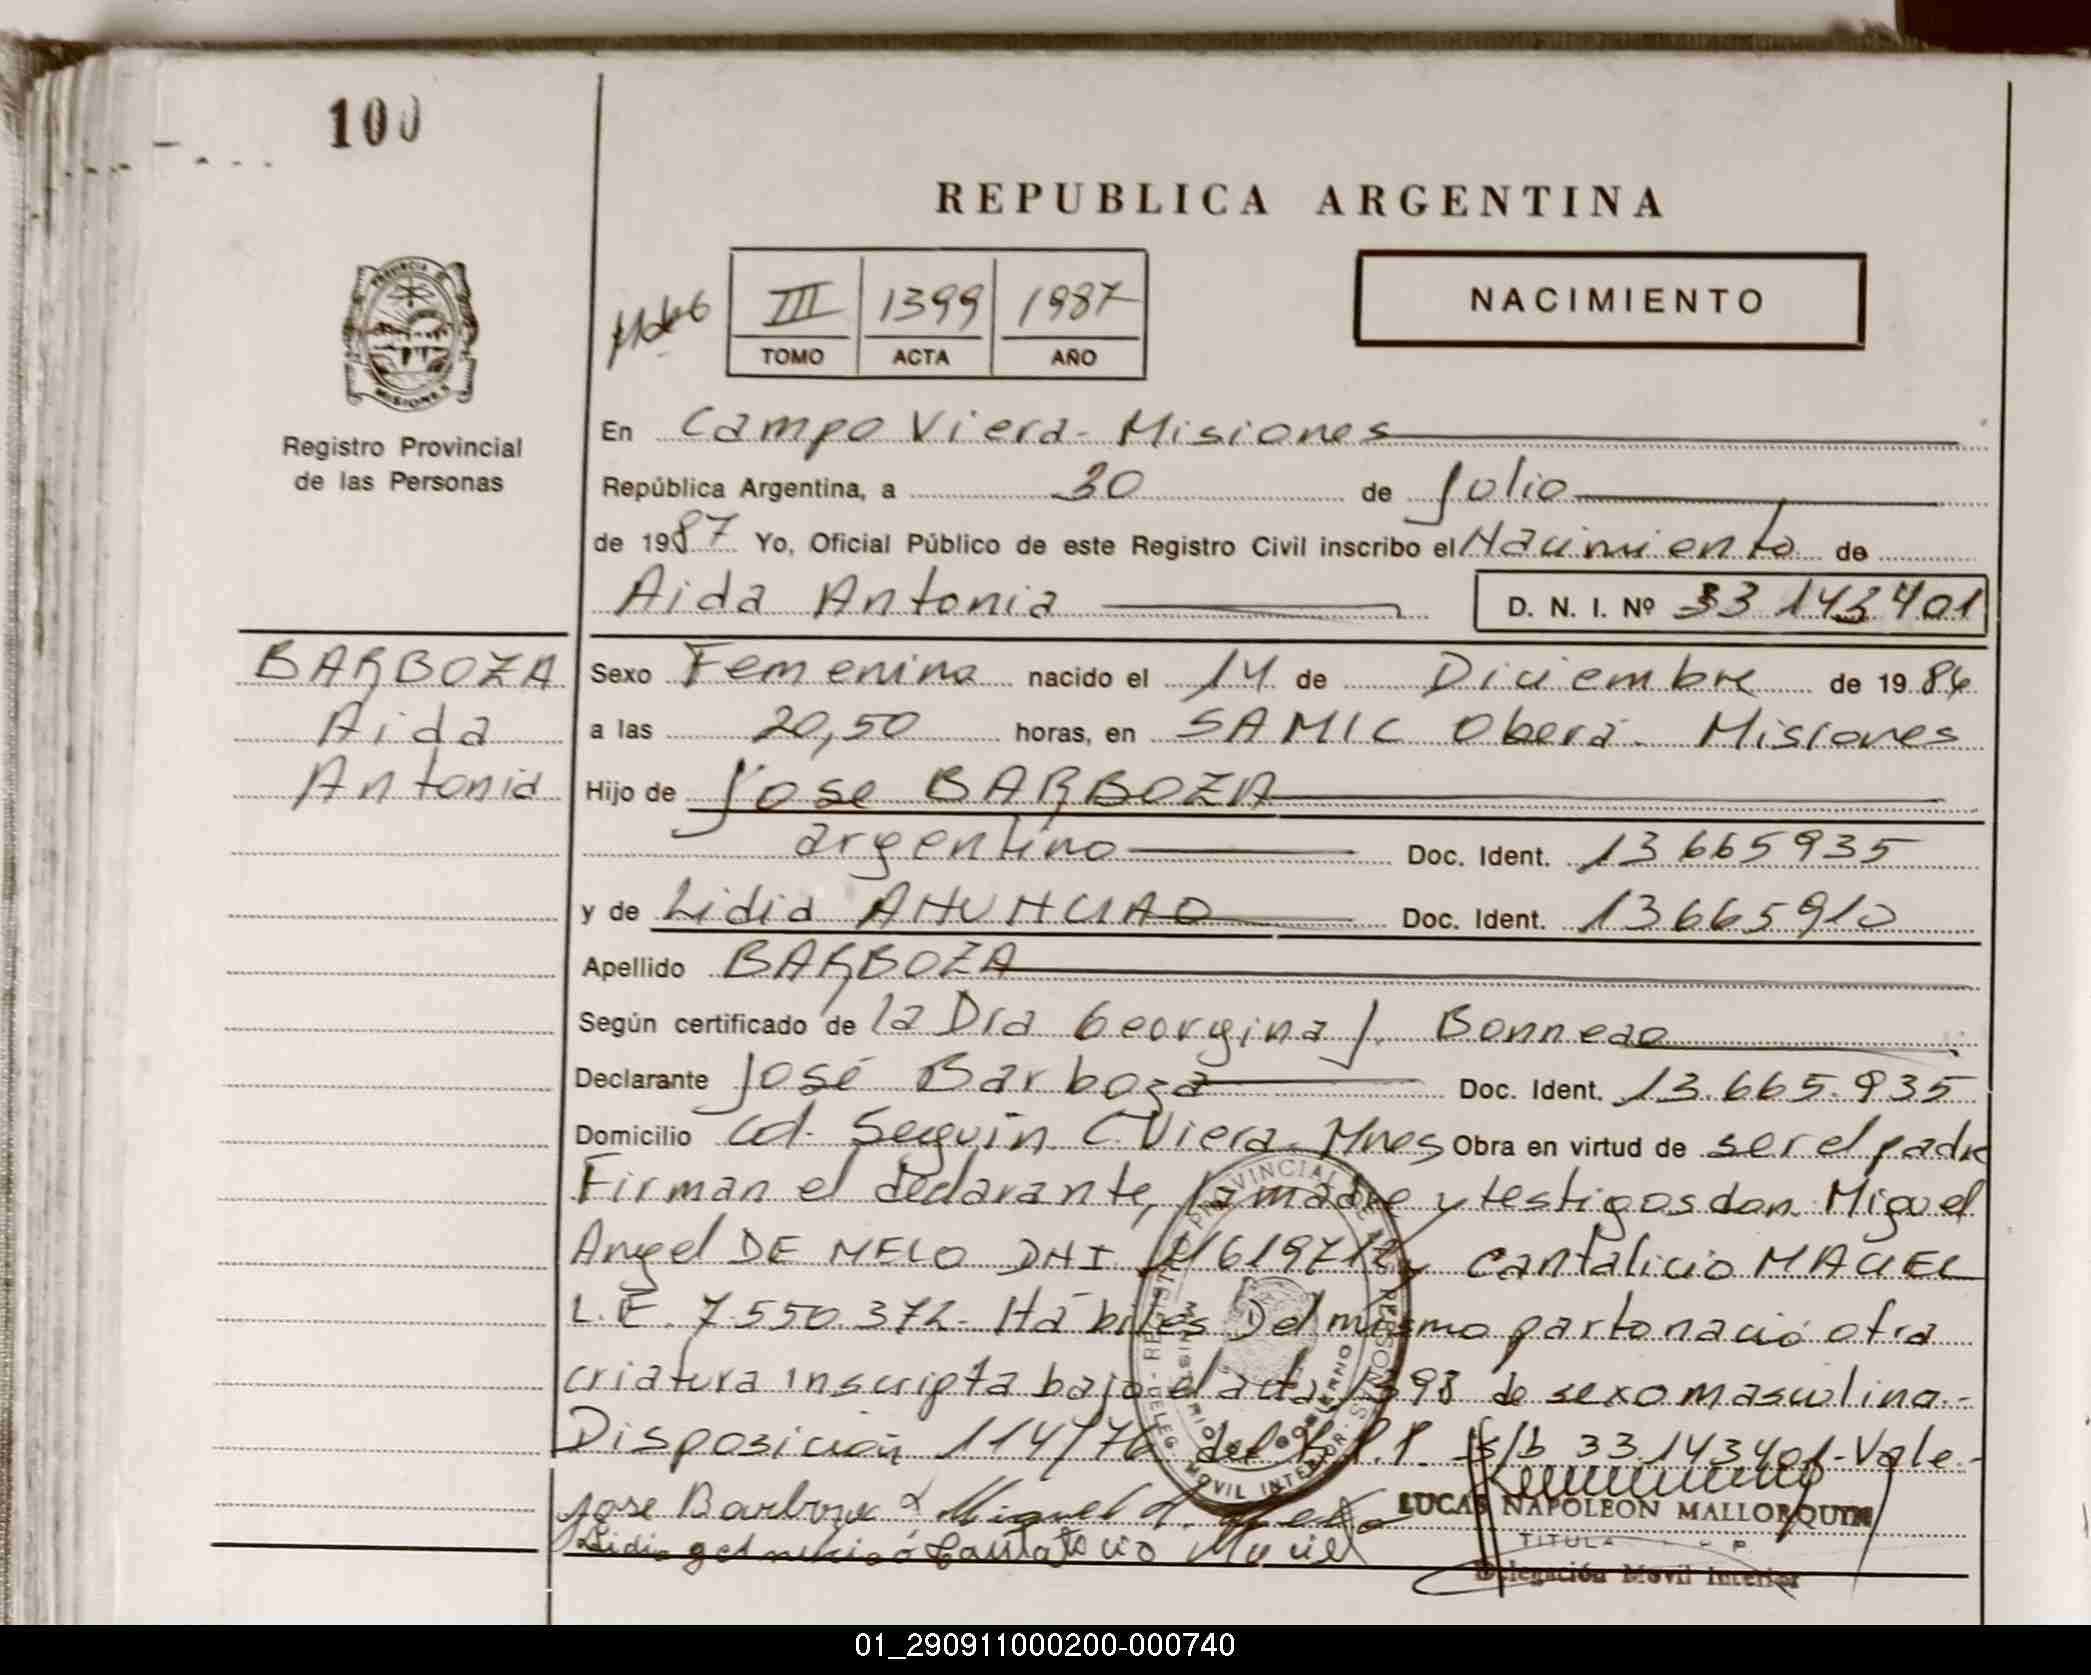 100
REPUBLICA ARGENTINA
NACIMIENTO
III 1399 1987
TOMO ACTA AÑO
PROVINCIA DE
MISIONES
Registro Provincial
de las Personas
En Campo Viera - Misiones
República Argentina, a 30 de Julio
de 1987 Yo, Oficial Público de este Registro Civil inscribo el Nacimiento de
Aida Antonia D. N. I. Nº 33 143 401
BARBOZA
Aida
Antonia
Sexo Femenina nacido el 14 de Diciembre de 1986
a las 20,50 horas, en SAMIC Oberá. Misiones
Hijo de Jose BARBOZA
argentino Doc. Ident. 13 665 935
y de Lidia Doc. Ident. 13 665 910
Apellido BARBOZA
Según certificado de la Dra Georgina J. Bonneao
Declarante José Barboza Doc. Ident. 13.665.935
Domicilio Col. Seguin C. Viera Mnes Obra en virtud de ser el padre
Firman el declarante, la madre y testigos don Miguel
Angel DE MELO DNI y Cantalicio MACIEL
L.E. 7.550.372 - Hábiles Del mismo parto nació otra
criatura inscripta bajo el acta 1398 de sexo masculino.-
Disposición 114/76 del R.P.P. s/b 33143401 - Vale.-
Jose Barboza Miguel A. Melo
LUCAS NAPOLEON MALLORQUIN
Lidia Cantalicio Maciel
Delegación Movil Interior
01_290911000200-000740